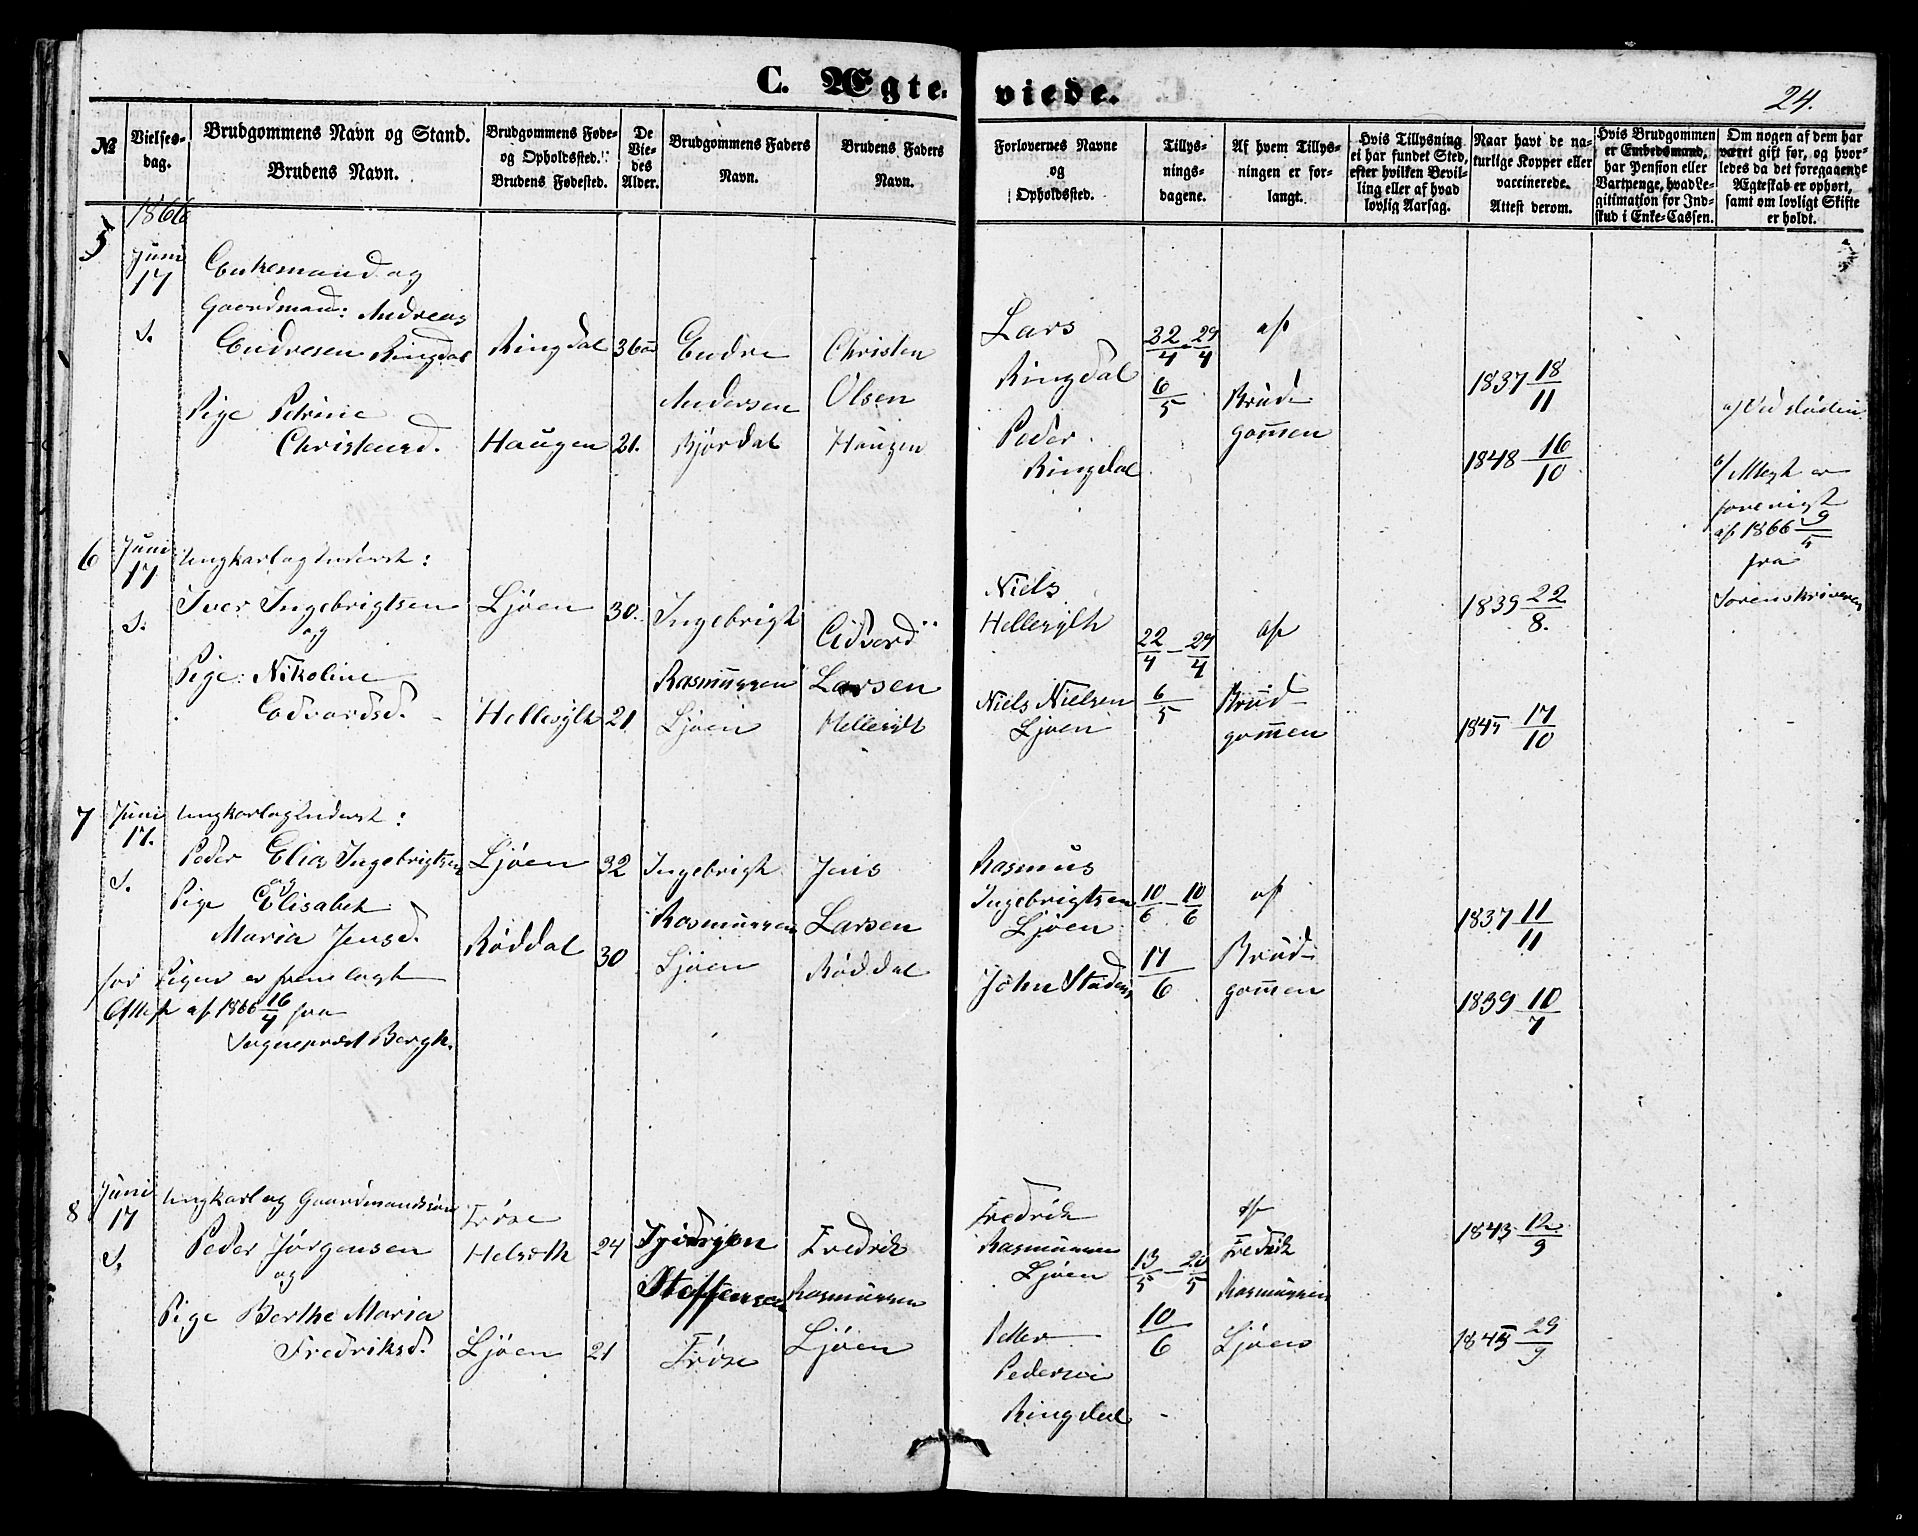 C. Ægteviede.
24.
№
Vielsesdag.
Brudgommens Navn og Stand.
Brudens Navn.
Brudgommens Føde-
og Opholdssted.
Brudens Fødested.
De
Vie-
des
Alder.
Brudgommens Faders
Navn.
Brudens Faders
Navn.
Forlovernes Navne
og
Opholdssted.
Tillys-
nings-
dagene.
Af hvem Tillys-
ningen er for-
langt.
Hvis Tillysning
ei har fundet Sted,
efter hvilken Bevil-
ling eller af hvad
lovlig Aarsag.
Naar havt de na-
turlige Kopper eller
vaccinerede.
Attest derom.
Hvis Brudgommen
er Embedsmand,
har Pension eller
Vartpenge, hvad Le-
gitimation for Ind-
skud i Enke-Cassen.
Om nogen af dem har
været gift før, og hvor-
ledes da det foregaaende
Ægteskab er ophørt,
samt om lovligt Skifte
er holdt.
1866
5
Juni
17
S.
Enkemand og
Gaardmand: Andreas
Endresen Ringdal
Pige Petrine
Christensd.
Ringdal
Haugen
36
21.
Endre
Andersen
Bjørdal
Christen
Olsen
Haugen
Lars
Ringdal
Peder
Ringdal
22/4 - 29/4
6/5
af
Brud-
gommen
1837 18/11
1848 16/10
a/ Ved Døden
b/
er
af 1866 9/5
fra
Sorenskriveren
6
Juni
17
S.
Ungkarl og Inderst:
Iver Ingebrigtsen
og
Pige: Nikoline
Edvardsd.
Ljøen
Hellesylt
30.
21
Ingebrigt
Rasmussen
Ljøen
Edvard
Larsen
Hellesylt
Niels
Hellesylt
Niels Nielsen
Ljøen
22/4 - 29/4
6/5
af
Brud-
gommen
1839 22/8.
1845 17/10
7
Juni
17.
S.
Ungkarl og Inderst:
Peder Elias Ingebrigtsen
og
Pige Elisabet
Maria Jensd.
for Pigen er fremlagt
Attest af 1866 16/4 fra
Sognepræst Bergh.
Ljøen
Røddal
32
30
Ingebrigt
Rasmussen
Ljøen
Jens
Larsen
Røddal
Rasmus
Ingebrigtsen
Ljøen
John
10/6 - 10/6
17/6
af
Brud-
gommen
1837 11/11
1839 10/7
8
Juni
17
S.
Ungkarl og Gaardmandssøn
Peder Jørgensen
og
Pige Berthe Maria
Fredriksd.
Frøse
Ljøen
24
21
Steffensen
Frøse
Fredrik
Rasmussen
Ljøen
Fredrik
Rasmussen
Ljøen
Peder
Pedersen
Ringdal
13/5 - 20/5
10/6
af
Fredrik
Rasmussen
Ljøen
1843 12/9
1845 29/9